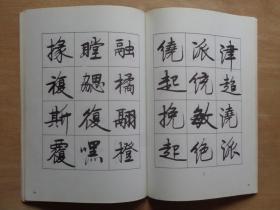 津超澆派
派统敏绝
僥起挽起
融橘翮橙
瞠勰復嘿
掾複斯覆